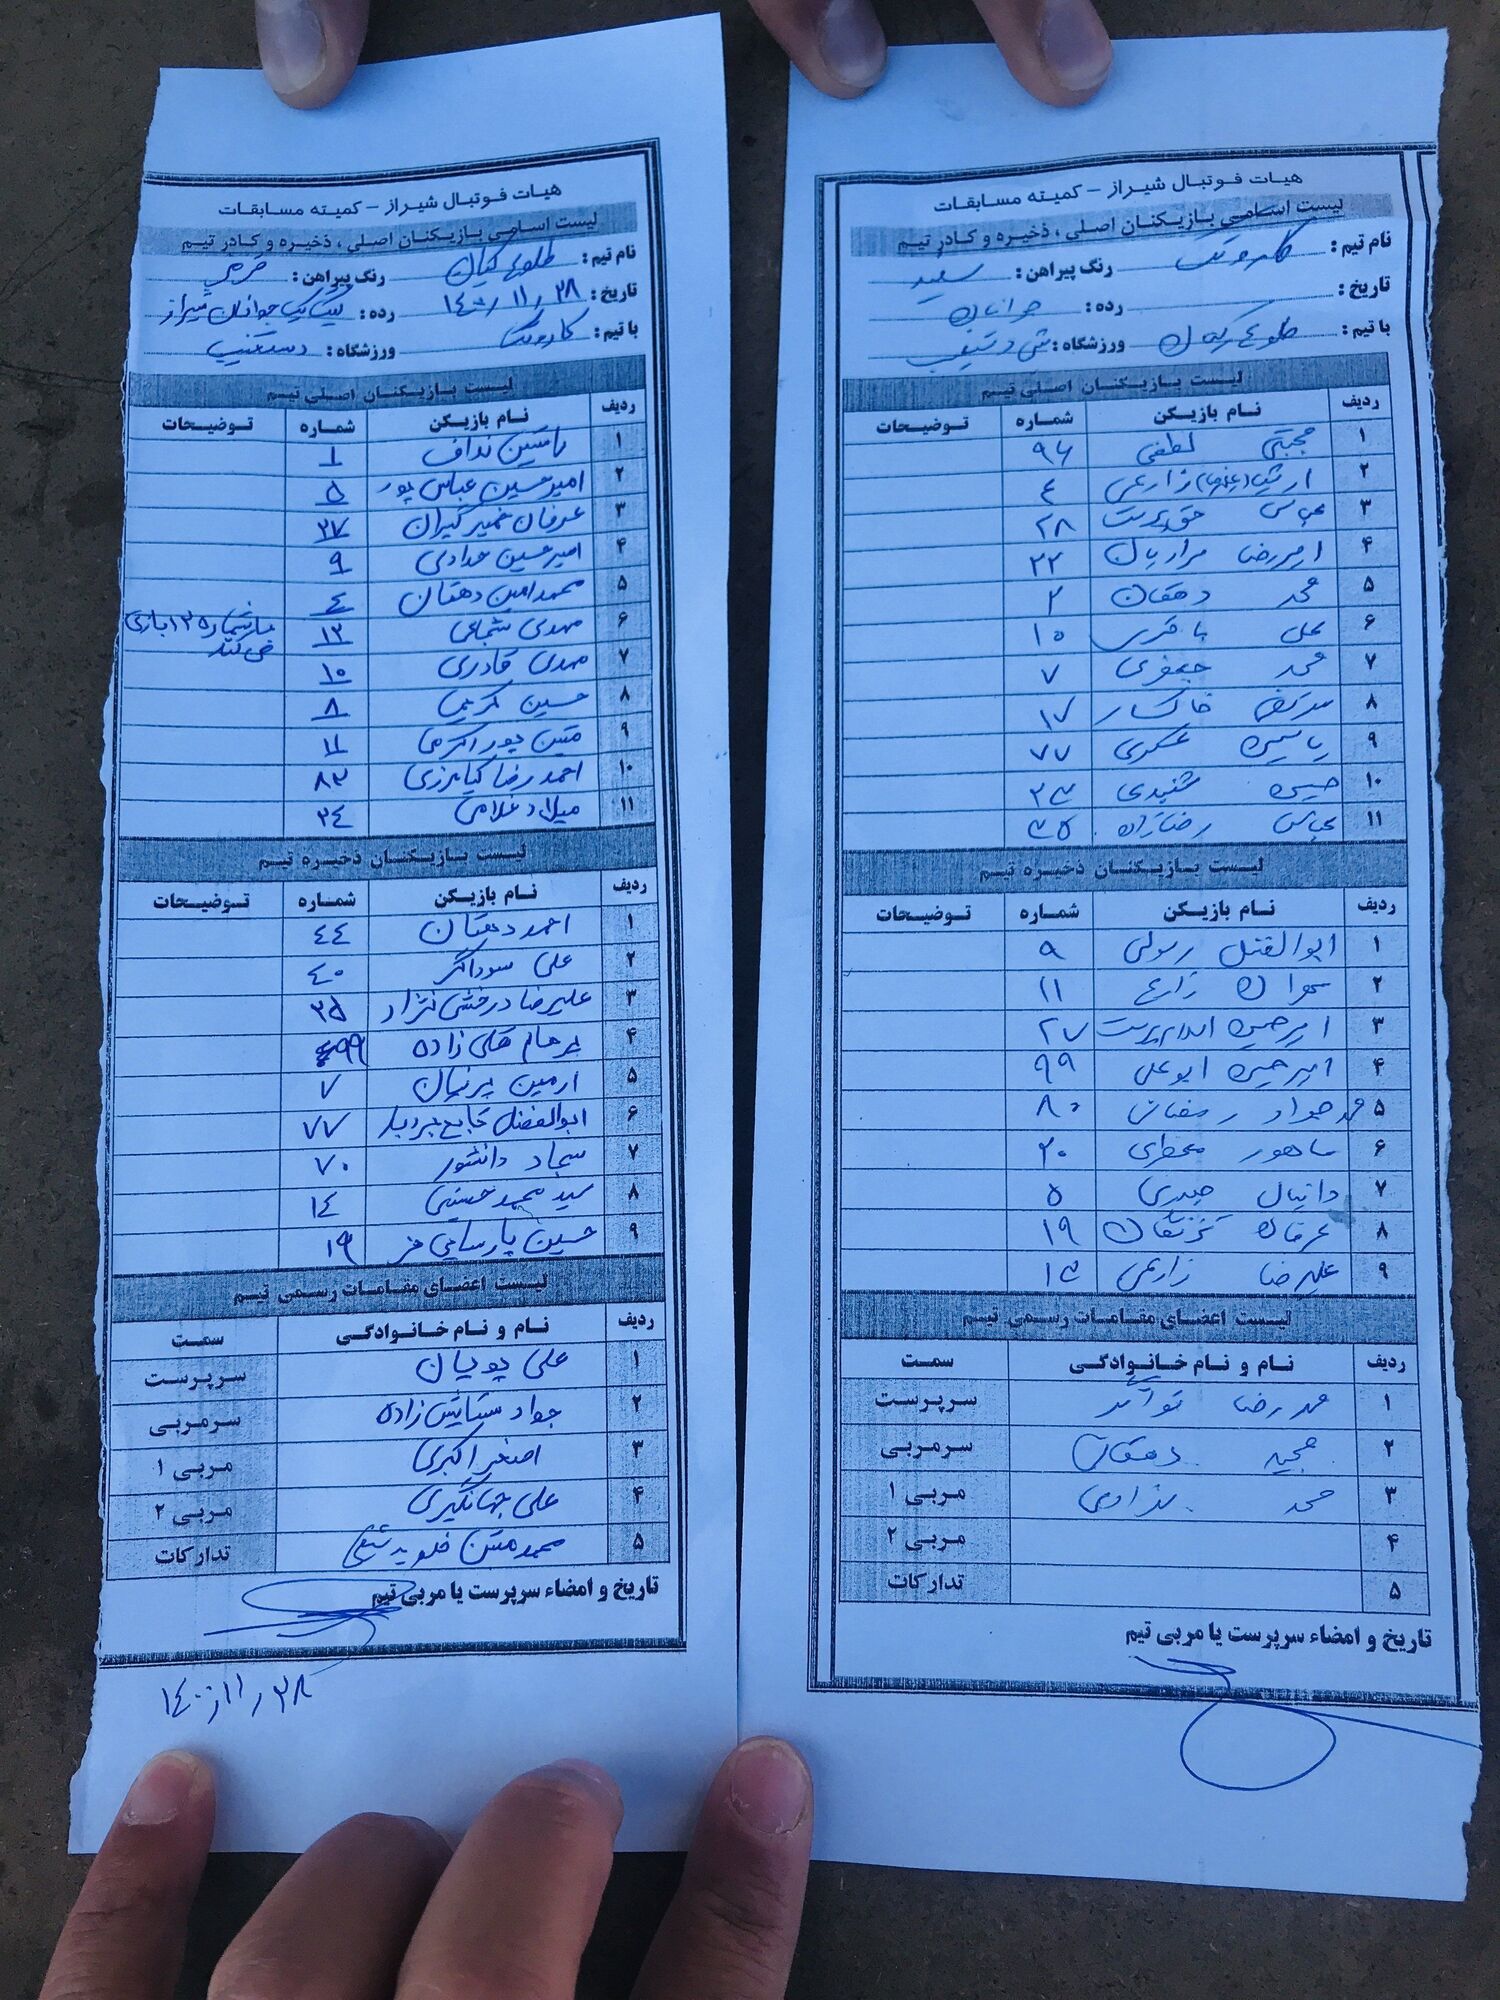 هیات فوتبال شیراز – کمیته مسابقات
لیست اسامی بازیکنان اصلی ، ذخیره و کادر تیم
نام تیم : طلوع کیان رنگ پیراهن : قرمز
تاریخ : ۱۴۰۰/۱۱/۲۸ رده : لیگ یک جوانان شیراز
با تیم : کارونک ورزشگاه : دستغیب
لیست بازیکنان اصلی تیم
ردیف نام بازیکن شماره توضیحات
۱ یاسین نداف ۱
۲ امیرحسین عباس پور ۵
۳ عرفان خمیرگیران ۲۷
۴ امیرحسین مرادی ۹
۵ محمدامین دهقان ۴
۶ مهدی شجاعی ۱۳ با شماره ۱۲ بازی می کند
۷ مهدی قادری ۱۰
۸ حسین کریمی ۸
۹ متین پوراکرمی ۱۱
۱۰ احمدرضا ۸۳
۱۱ میلاد غلامی ۳۴
لیست بازیکنان ذخیره تیم
ردیف نام بازیکن شماره توضیحات
۱ احمد دهقان ۴۴
۲ علی سوداگر ۴۰
۳ علیرضا درخشی نژاد ۳۵
۴ قلی زاده ۹۹
۵ آرمین پرنیان ۷
۶ ابوالفضل ۷۷
۷ سجاد دانشور ۷۰
۸ سید محمد حسینی ۱۴
۹ حسین پارسایی فر ۱۹
لیست اعضای مقامات رسمی تیم
ردیف نام و نام خانوادگی سمت
۱ علی پویان سرپرست
۲ جواد ستایش زاده سرمربی
۳ اصغر اکبری مربی ۱
۴ علی جهانگیری مربی ۲
۵ محمدمتین تدارکات
تاریخ و امضاء سرپرست یا مربی تیم
۱۴۰۰/۱۱/۲۸
هیات فوتبال شیراز – کمیته مسابقات
لیست اسامی بازیکنان اصلی ، ذخیره و کادر تیم
نام تیم : کارونک رنگ پیراهن : سفید
تاریخ : رده : جوانان
با تیم : طلوع کیان ورزشگاه : دستغیب
لیست بازیکنان اصلی تیم
ردیف نام بازیکن شماره توضیحات
۱ مجتبی لطفی ۹۶
۲ زارعی ۴
۳ عباس حق پرست ۲۸
۴ امیررضا مرادیان ۲۲
۵ محمد دهقان ۲
۶ علی باقری ۱۰
۷ محمد جعفری ۷
۸ مرتضی خاکسار ۱۷
۹ یاسین عسکری ۷۷
۱۰ حسین ۲۳
۱۱ عباس رضازاده ۳۵
لیست بازیکنان ذخیره تیم
ردیف نام بازیکن شماره توضیحات
۱ ابوالفضل رسولی ۹
۲ زارع ۱۱
۳ امیرحسین ۲۷
۴ امیرحسین ابوعلی ۹۹
۵ محمدجواد رمضانی ۸۰
۶ ماهور ۲۰
۷ دانیال حیدری ۵
۸ عرفان ۱۹
۹ علیرضا زارعی ۱۳
لیست اعضای مقامات رسمی تیم
ردیف نام و نام خانوادگی سمت
۱ محمدرضا سرپرست
۲ مجید دهقان سرمربی
۳ محمد مربی ۱
۴ مربی ۲
۵ تدارکات
تاریخ و امضاء سرپرست یا مربی تیم